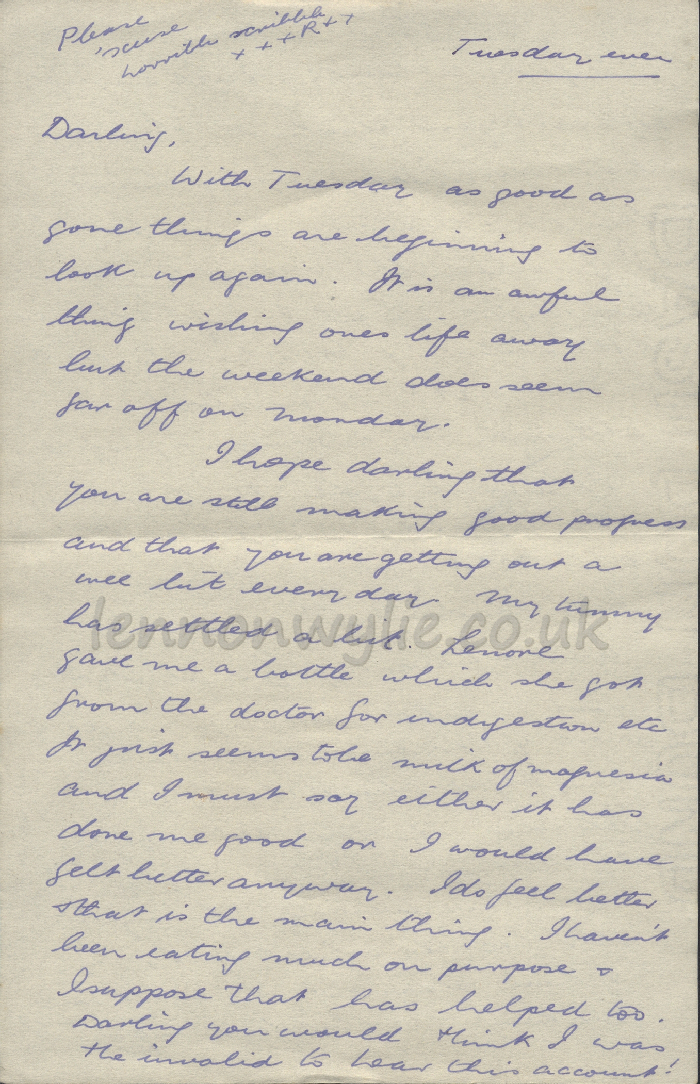 Please
'scuse
horrible scribble
+ + + R + +
Tuesday even
Darling,
With Tuesday as good as
gone things are beginning to
look up again. It is an awful
thing wishing ones life away
but the weekend does seem
far off on Monday.
I hope darling that
you are still making good progress
and that you are getting out a
wee bit every day. My tummy
has settled a bit. Lenore
gave me a bottle which she got
from the doctor for indigestion etc
It just seems to be milk of magnesia
and I must say either it has
done me good or I would have
felt better anyway. I do feel better
& that is the main thing. I haven't
been eating much on purpose &
I suppose that has helped too.
Darling you would think I was
the invalid to hear this account!
lennonwylie.co.uk